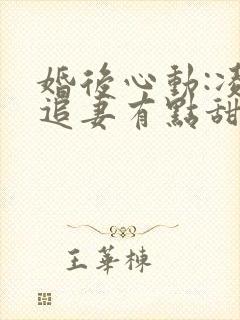 婚後心動:凌
追妻有點甜
王華棟